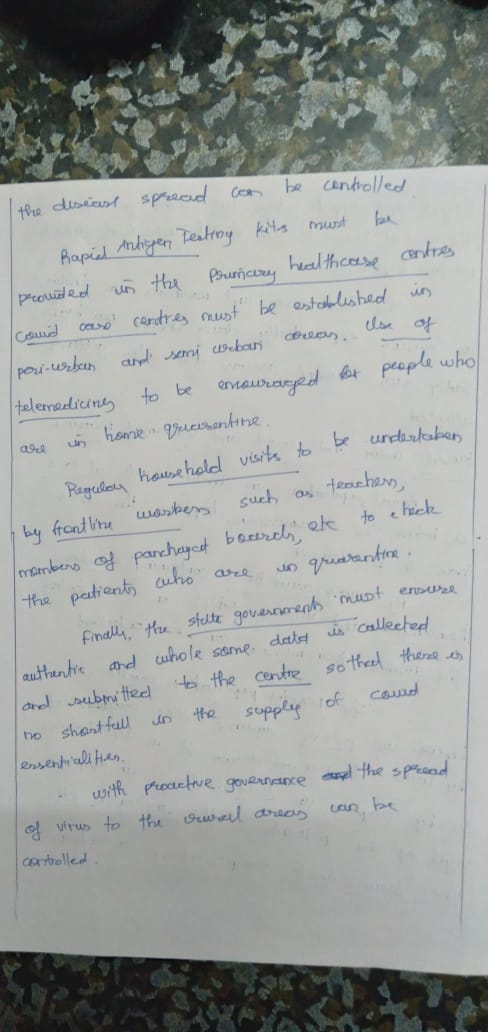 the disease spread can be controlled.
Rapid Antigen Testing kits must be
provided in the primary healthcare centres
Covid care centres must be established in
peri-urban and semi urban areas. Use of
telemedicines to be encouraged for people who
are in home quarentine.
Regular household visits to be undertaken
by frontline workers such as teachers,
members of panchayat boards, etc to check
the patients who are in quarantine.
Finally, the state governments must ensure
authentic and whole some data is collected
and submitted to the centre so that there is
no shortfall in the supply of covid
essentialities.
with proactive governance the spread
of virus to the rural areas can be
controlled.